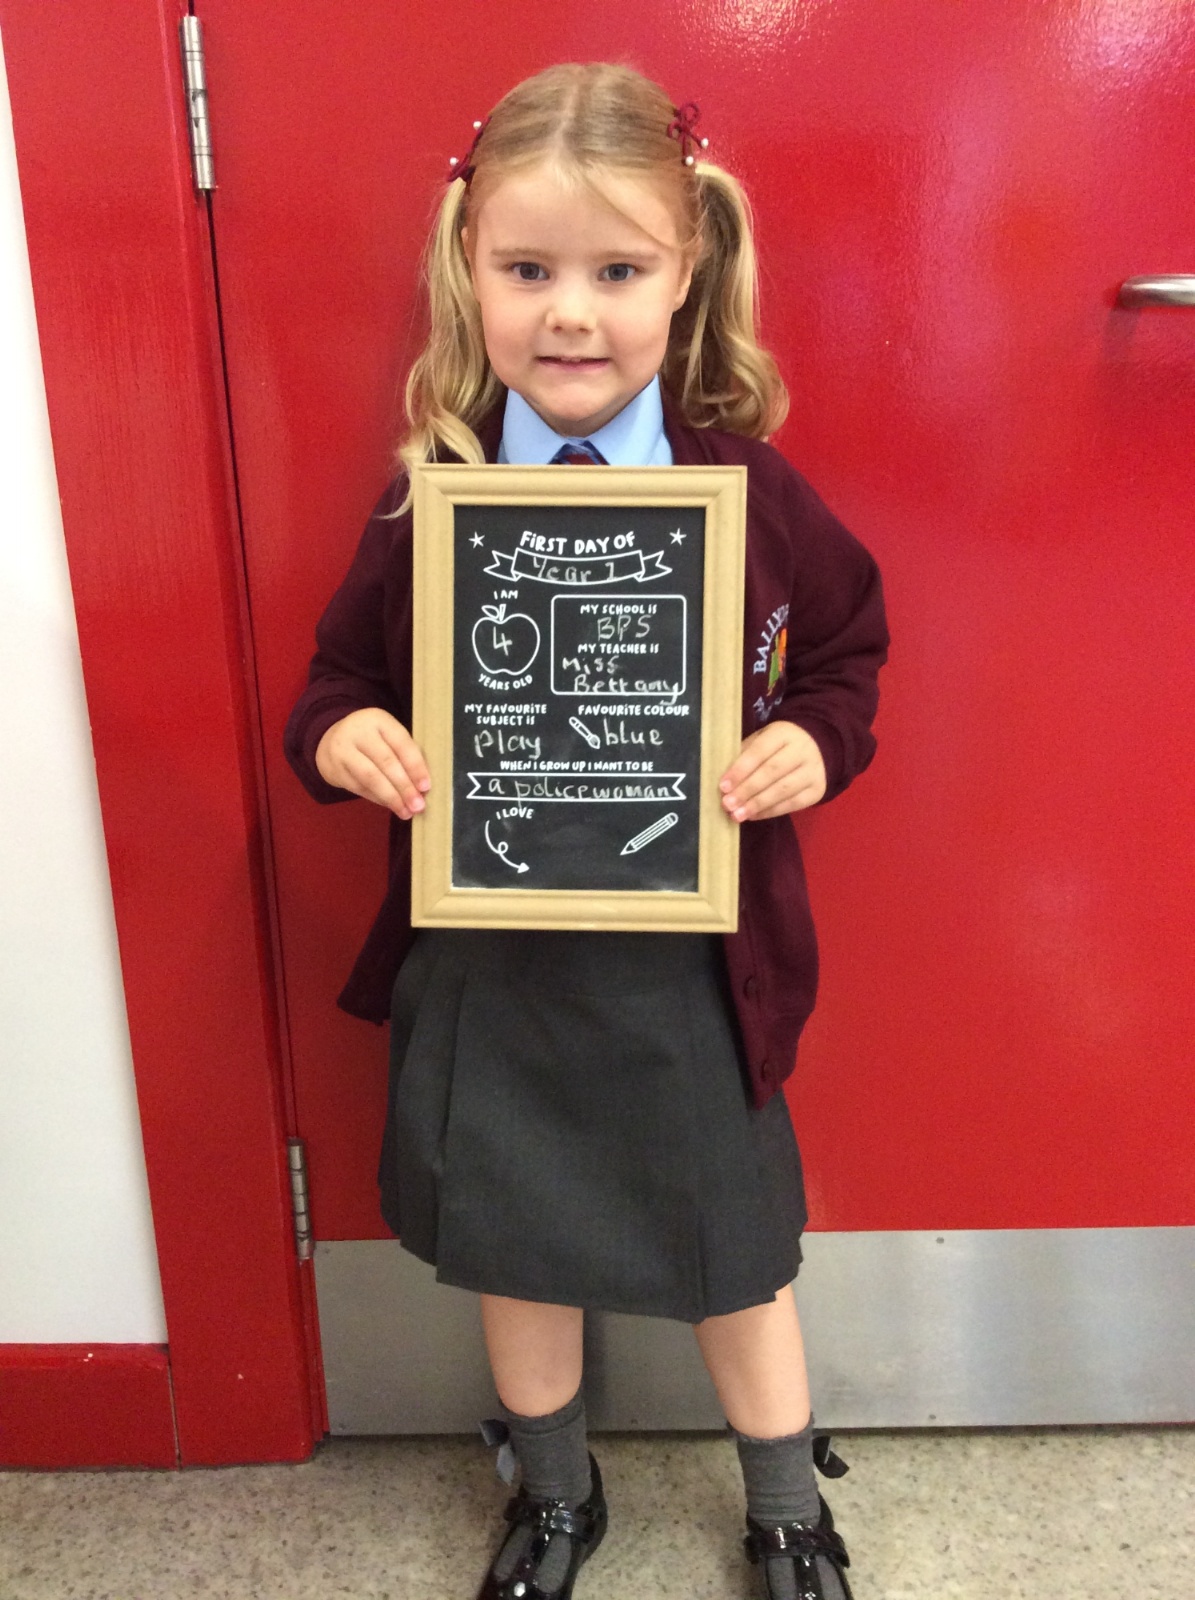 FIRST DAY OF
Year 1
I AM
4
YEARS OLD
MY SCHOOL IS
BPS
MY TEACHER IS
Miss
Bettany
MY FAVOURITE
SUBJECT IS
play
FAVOURITE COLOUR
blue
WHEN I GROW UP I WANT TO BE
a policewoman
I LOVE